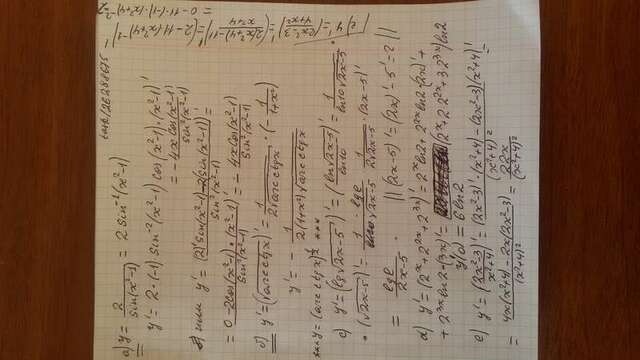 task/26288675
a) y = 2/sin(x²-1) = 2 sin⁻¹(x²-1)
y' = 2·(-1) sin⁻²(x²-1) cos(x²-1)·(x²-1)'
= -4x cos(x²-1)/sin²(x²-1)
или y' = ((2)' sin(x²-1) - 2(sin(x²-1))')/sin²(x²-1) =
= (0-2cos(x²-1)·(x²-1)')/sin²(x²-1) = -4x cos(x²-1)/sin²(x²-1)
б) y' = (√arcctgx)' = 1/(2√arcctgx)·(-1/(1+x²))
y' = -1/(2(1+x²)√arcctgx)
***y = (arcctgx)^½ ***
c) y' = (lg√(2x-5))' = (ln√(2x-5)/ln10)' = 1/(ln10√(2x-5)) ·
·(√(2x-5))' = lge/√(2x-5) · 1/(2√(2x-5)) ·(2x-5)'
= lge/(2x-5) . ||(2x-5)' = (2x)' - 5' = 2||
d) y' = (2ˣ+2²ˣ+2³ˣ)' = 2ˣln2+2²ˣln2·(2x)'+
+2³ˣln2·(3x)' = (2ˣ+2 2²ˣ+3 2³ˣ)ln2
y'(0) = 6ln2
e) y' = ((2x²-3)/(x²+4))' = ((2x²-3)'·(x²+4)-(2x²-3)(x²+4)')/(x²+4)² =
= (4x(x²+4)-2x(2x²-3))/(x²+4)² = 22x/(x²+4)²
e) y' = ((2x²-3)/(x²+4))' = ((2(x²+4)-11)/(x²+4))' = (2-11(x²+4)⁻¹)'
= 0-11·(-1)(x²+4)⁻²·2x